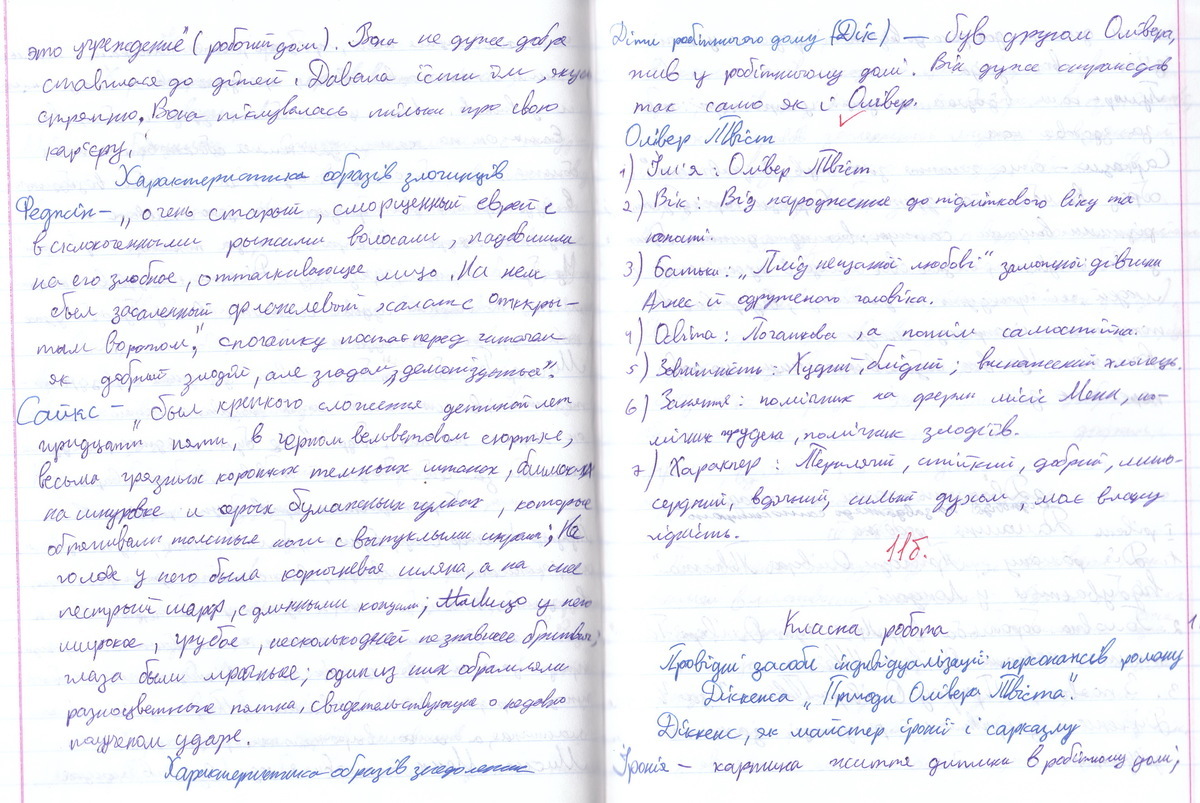 это учреждение" (робочий дом). Вона не дуже добре
ставилася до дітей. Давала їсти їм, якусь
стряпню. Вона піклувалась тільки про свою
кар'єру.
Характеристика образів злочинців
Феджін – „очень старый, сморщенный еврей с
всклокоченными рыжими волосами, падавшими
на его злобное, отталкивающее лицо. На нем
был засаленный фланелевый халат с откры-
тым воротом", спочатку постає перед читачем
як добрий злодій, але згодом „демонізується".
Сайкс – „был крепкого сложения детиной лет
тридцати пяти, в черном вельветовом сюртке,
весьма грязных коротких темных штанах, башмаках
на шнуровке и серых бумажных чулках, которые
обтягивали толстые ноги с выпуклыми икрами; На
голове у него была коричневая шляпа, а на шее
пестрый шарф, с длинными концами; Лицо у него
широкое, грубое, несколько дней не знавшее бритвы;
глаза были мрачные; один из них обрамляли
разноцветные пятна, свидетельствующие о недавно
полученом ударе.
Характеристика образів
Діти робітничого дому (Дік) – був другом Олівера,
жив у робітничому домі. Він дуже страждав
так само як і Олівер.
Олівер Твіст
1) Ім'я: Олівер Твіст
2) Вік: Від народження до підліткового віку та
юнаті.
3) Батьки: „Плід нещасної любові" заможної дівчини
Агнес й одруженого чоловіка.
4) Освіта: Початкова, а потім самостійна.
5) Зовнішність: Худий, блідий; виснажений хлопець.
6) Заняття: помічник на фермі місіс Менн, по-
мічник трунаря, помічник злодіїв.
7) Характер: Терплячий, стійкий, добрий, мило-
сердний, вдячний, сильний духом, має власну
гідність.
11б.
Класна робота
Провідні засоби індивідуалізації персонажів роману
Діккенса „Пригоди Олівера Твіста".
Діккенс, як майстер іронії і сарказму
Іронія – картина життя дитини в робітному домі;